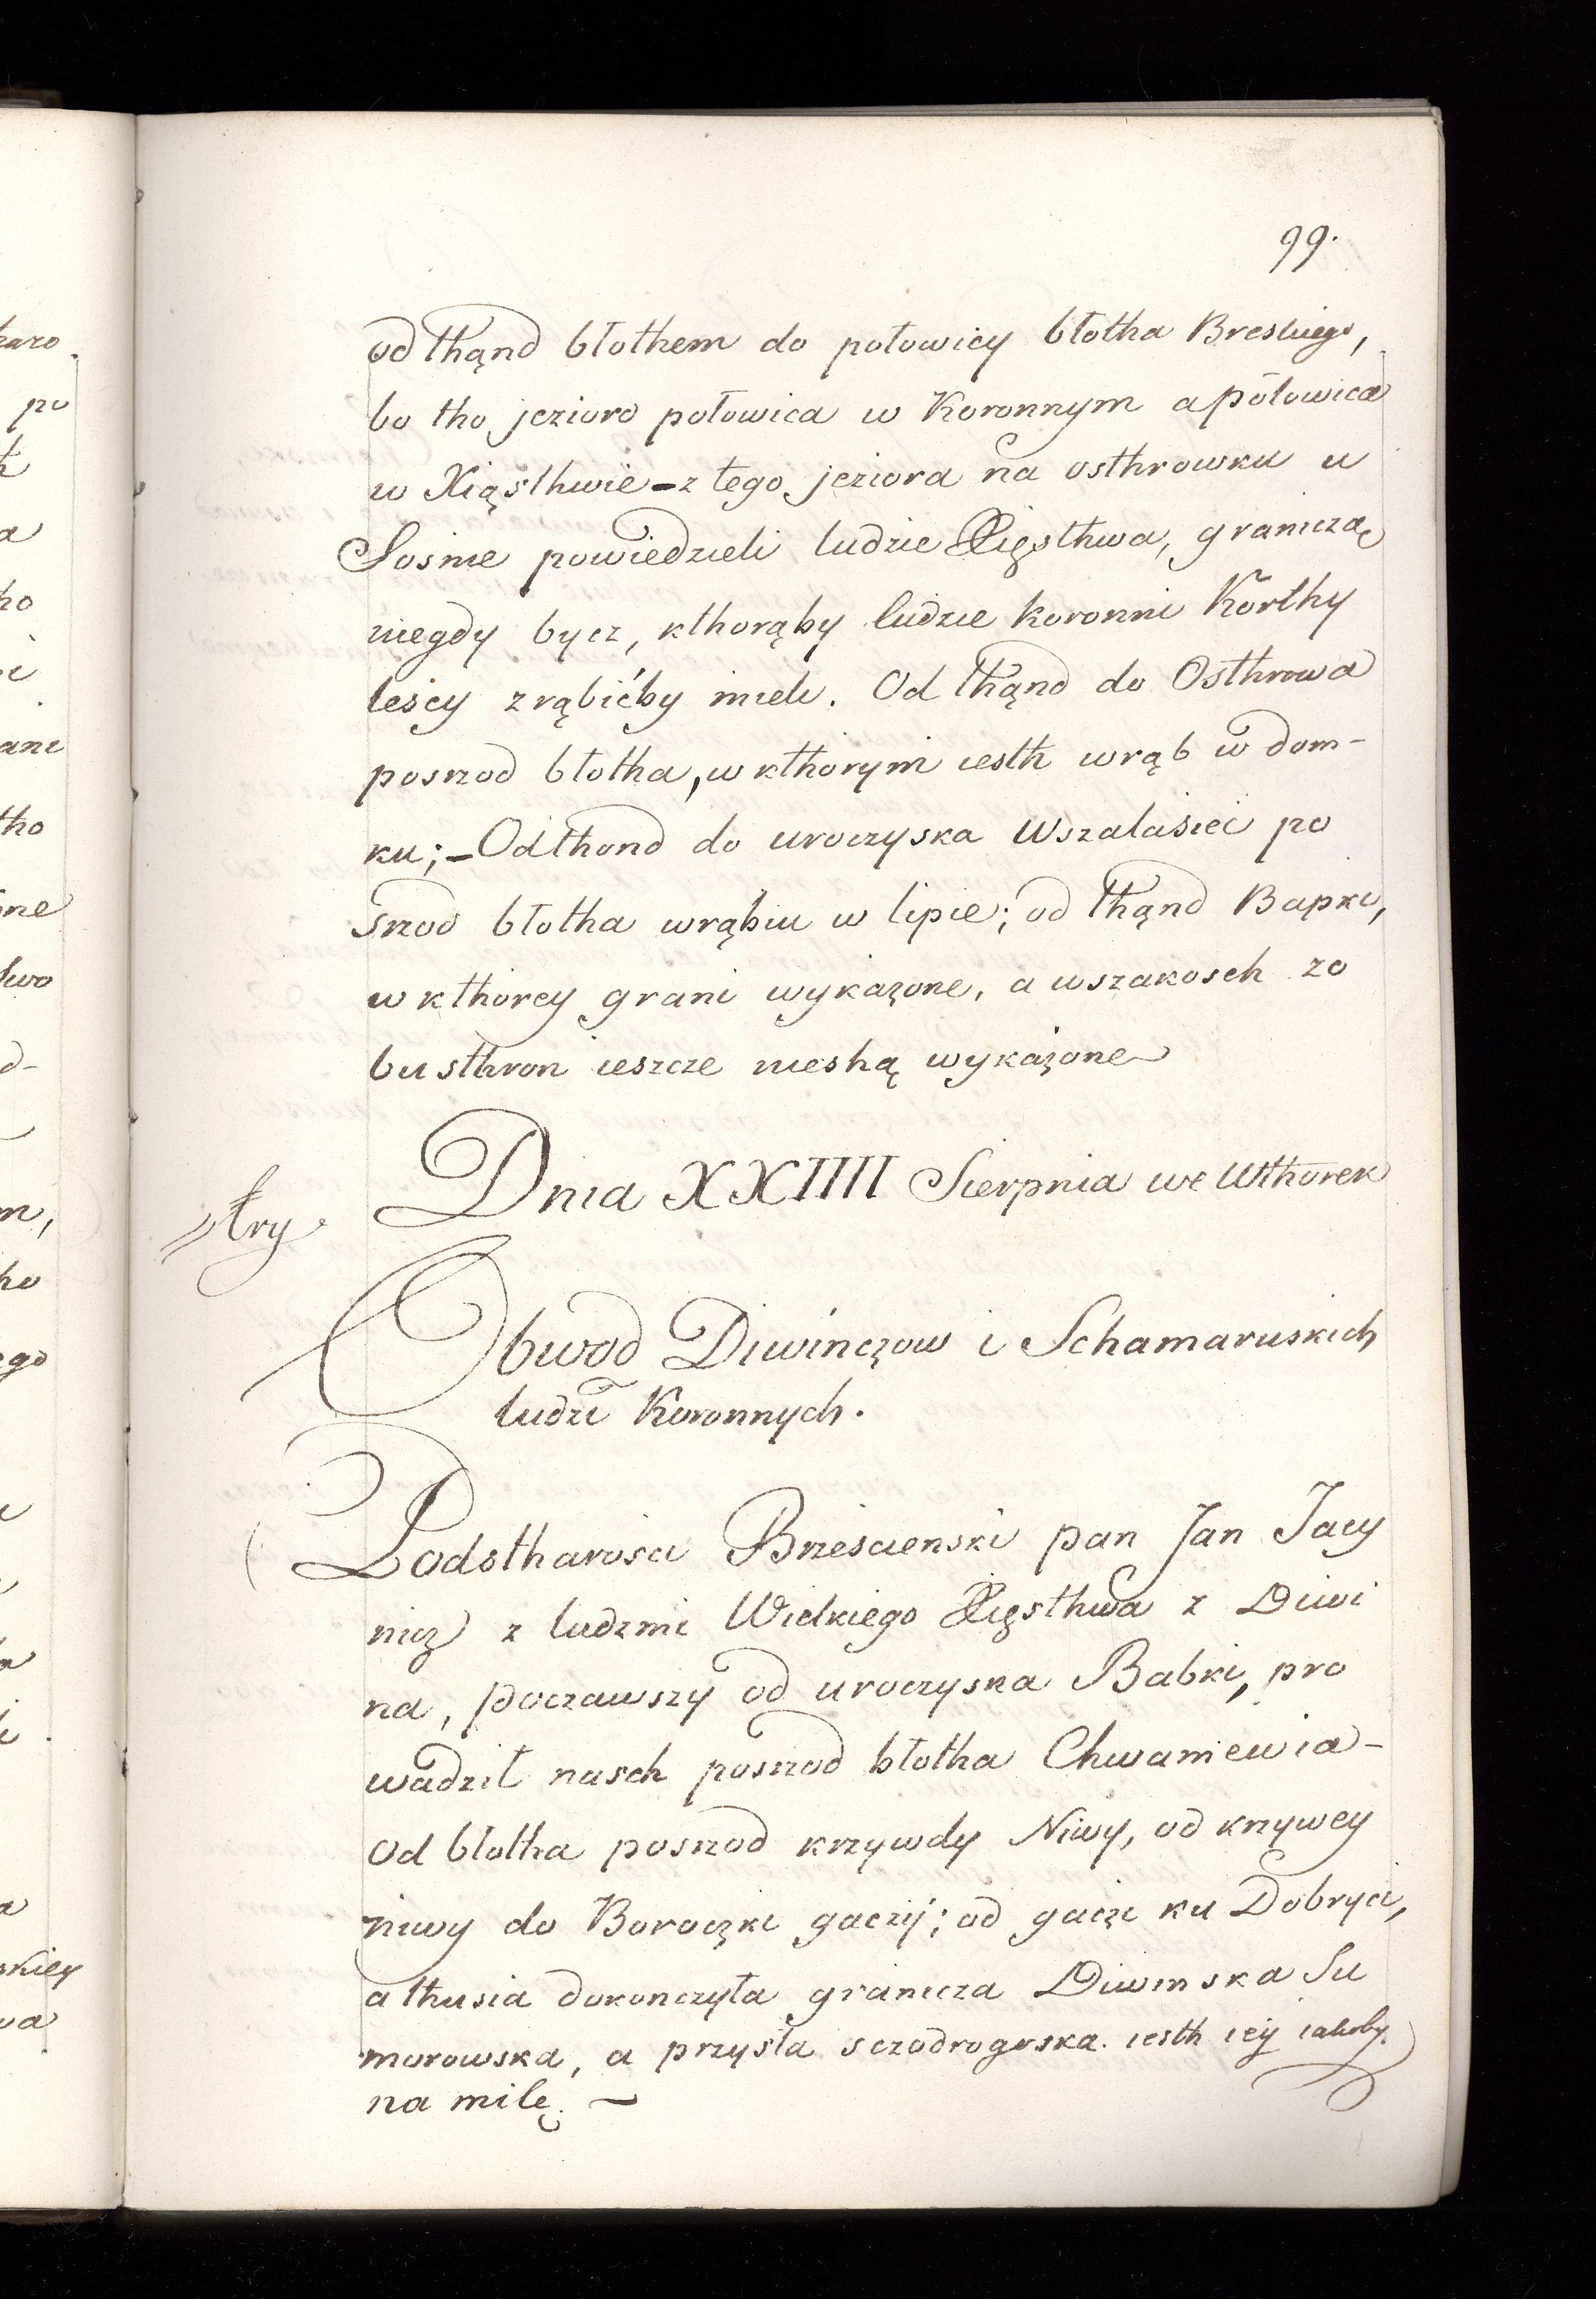 99.
od thąnd błothem do połowicy błotha Breskiego,
bo tho jezioro połowica w Koronnym a połowica
w Xiąsthwie – z tego jeziora na osthrowku u
Sośnie powiedzieli ludzie Xięsthwa, graniczą
niegdy bycz, kthorąby ludzie koronni Korthy
lescy zrąbićby mieli. Od thąnd do Osthrowa
posrzod błotha, w kthorym iesth wrąb w dom-
ku; – Odthond do uroczyska Wszalasiei po
srzod błotha wrąbiu w lipie; od thąnd Bapki,
w kthorey grani wykazone, a wszakosch zo
bu sthron ieszcze nieshą wykazone
Dnia XXIIII Sierpnia we Wthorek
try
Obwod Diwinczow i Schamaruskich
ludzi Koronnych.
Podstharosci Brzescienski pan Jan Jacy
nicz z ludzmi Wielkiego Xięsthwa z Diwi
na, poczawszy od uroczyska Babki, pro
wadził nasch posrzod błotha Chwaniewia –
Od błotha posrzod krzywdy Niwy, od krzywey
niwy do Boroczki gaczij; od gaczi ku Dobryci,
a thusia dokonczyła granicza Diwinska Su
morowska, a przysła sczodrogorska. iesth iej iakoby
na milę. –